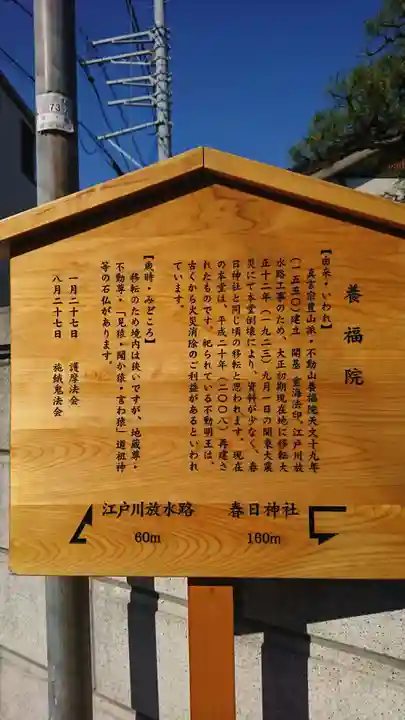 養福院
【由来・いわれ】
真言宗豊山派・不動山養福院天文十九年
(一五五〇)建立 開基 重海法印。江戸川放
水路工事のため、大正初期現在地に移転大
正十二年(一九二三)九月一日の関東大震
災にて本堂倒壊により、資料が少なく、春
日神社と同じ頃の移転と思われます。現在
の本堂は、平成二十年(二〇〇八)再建さ
れたものです。祀られている不動明王は、
古くから火災消除のご利益があるといわれ
ています。
【歳時・みどころ】
移転のため境内は狭いですが、地蔵尊・
不動尊・「見猿・聞か猿・言わ猿」道祖神
等の石仏があります。
一月二十七日 護摩法会
八月二十七日 施餓鬼法会
江戸川放水路
60m
春日神社
160m
73